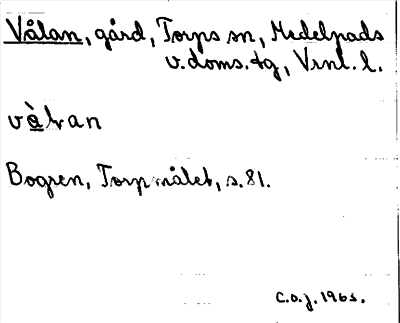 Vålan, gård, Torps sn, Medelpads
v.doms.tg, Vrnl. l.
Bogren, Torpmålet, s.81.
C.O.J. 1963.